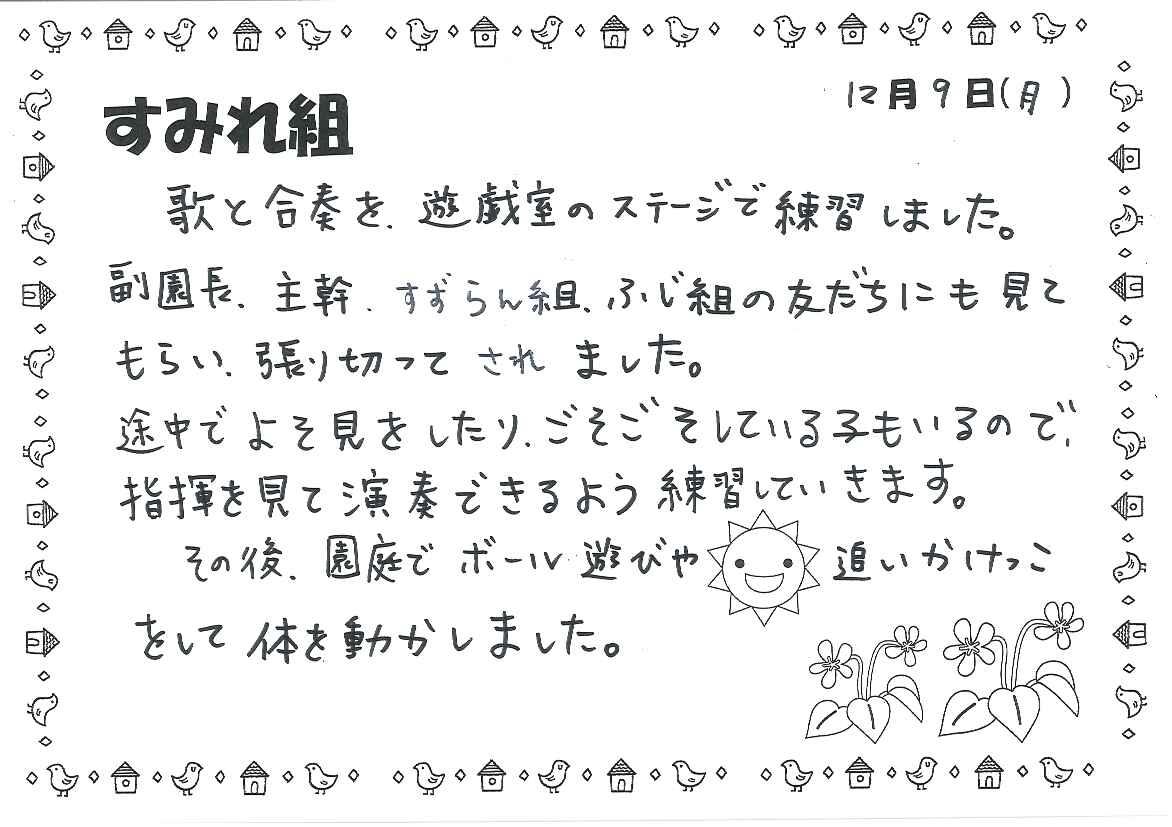 すみれ組
12月9日(月)
歌と合奏を、遊戯室のステージで練習しました。
副園長、主幹、すずらん組、ふじ組の友だちにも見て
もらい、張り切ってされました。
途中でよそ見をしたり、ごそごそしている子もいるので、
指揮を見て演奏できるよう練習していきます。
その後、園庭でボール遊びや追いかけっこ
をして体を動かしました。